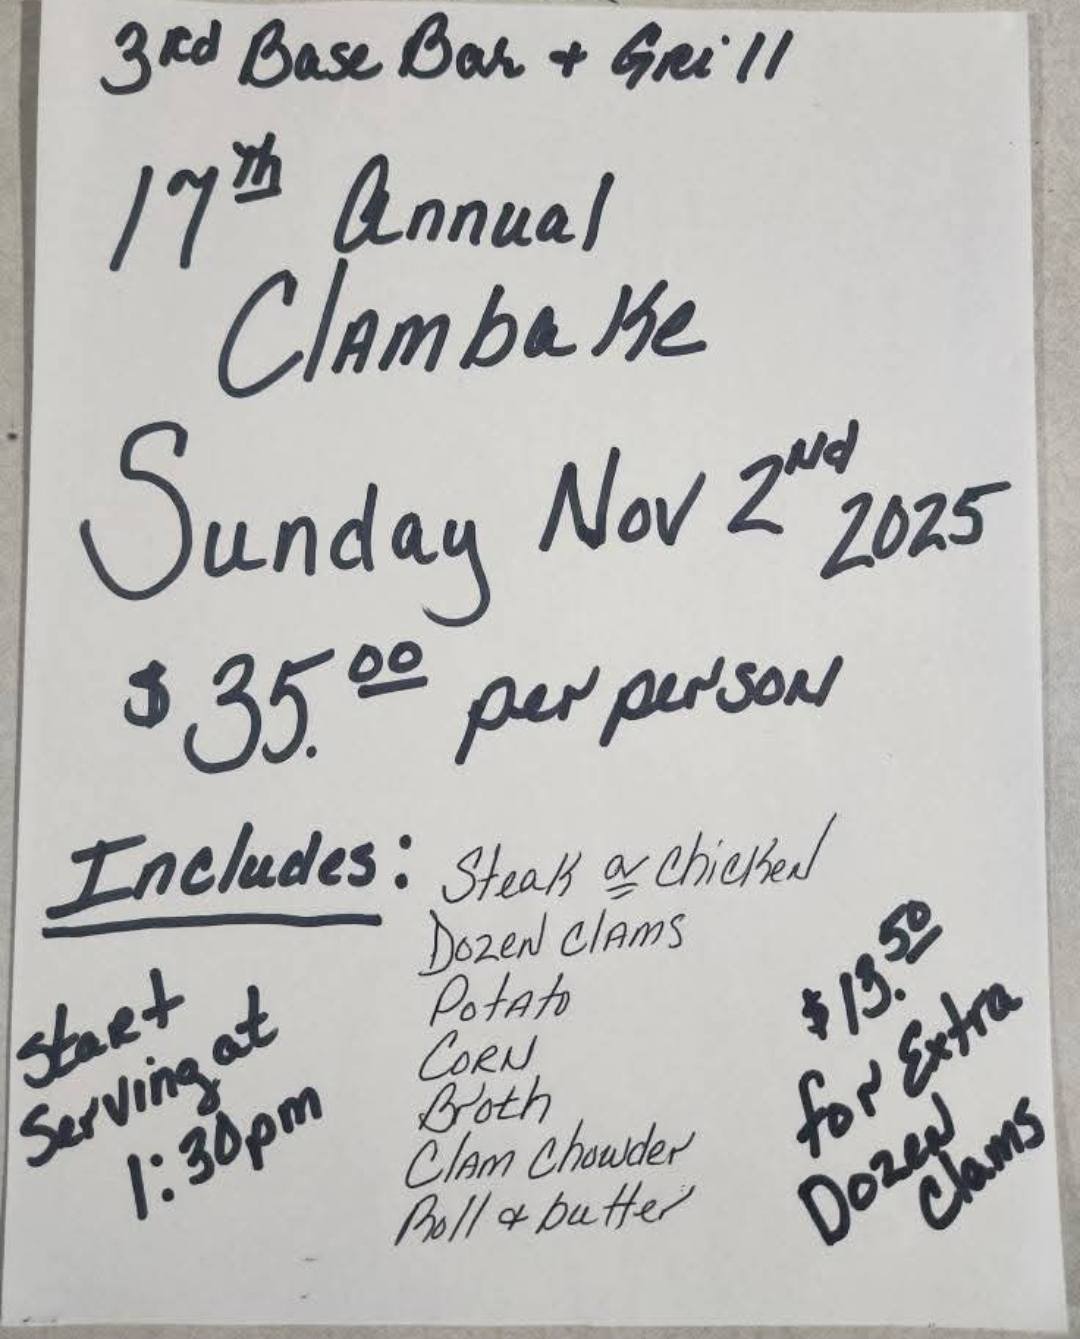 3rd Base Bar + Grill
17th Annual
Clambake
Sunday Nov 2nd 2025
$35.00 per person
Includes:
Steak or Chicken
Dozen Clams
Potato
Corn
Broth
Clam Chowder
Roll & butter
Start
Serving at
1:30pm
$13.50
for Extra
Dozen
Clams